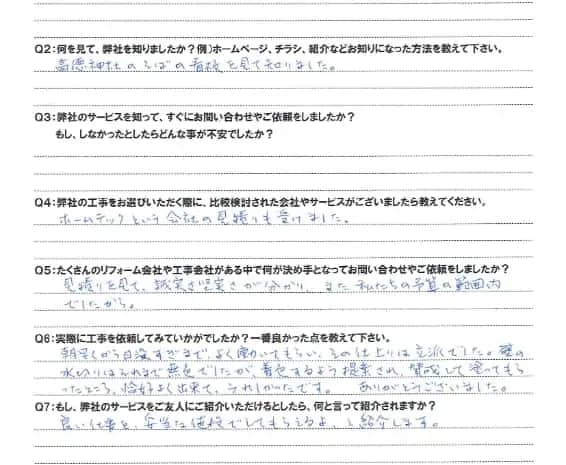 Q2:何を見て、弊社を知りましたか？例)ホームページ、チラシ、紹介などお知りになった方法を教えて下さい。
高徳神社のそばの看板を見て知りました。
Q3:弊社のサービスを知って、すぐにお問い合わせやご依頼をしましたか？
もし、しなかったとしたらどんな事が不安でしたか？
Q4:弊社の工事をお選びいただく際に、比較検討された会社やサービスがございましたら教えてください。
ホームテックという会社の見積りも受けました。
Q5:たくさんのリフォーム会社や工事会社がある中で何が決め手となってお問い合わせやご依頼をしましたか？
見積りを見て、誠実さ堅実さが分かり、また私たちの予算の範囲内
でしたから。
Q6:実際に工事を依頼してみていかがでしたか？一番良かった点を教えて下さい。
朝早くから日没すぎまでよく働いてもらい、その仕上りは立派でした。壁の
水切りはそれまで無色でしたが、着色するよう提案され、賛成して塗ってもら
ったところ、恰好よく出来て、うれしかったです。ありがとうございました。
Q7:もし、弊社のサービスをご友人にご紹介いただけるとしたら、何と言って紹介されますか？
良い仕事を、妥当な値段でしてもらえるよ、と紹介します。